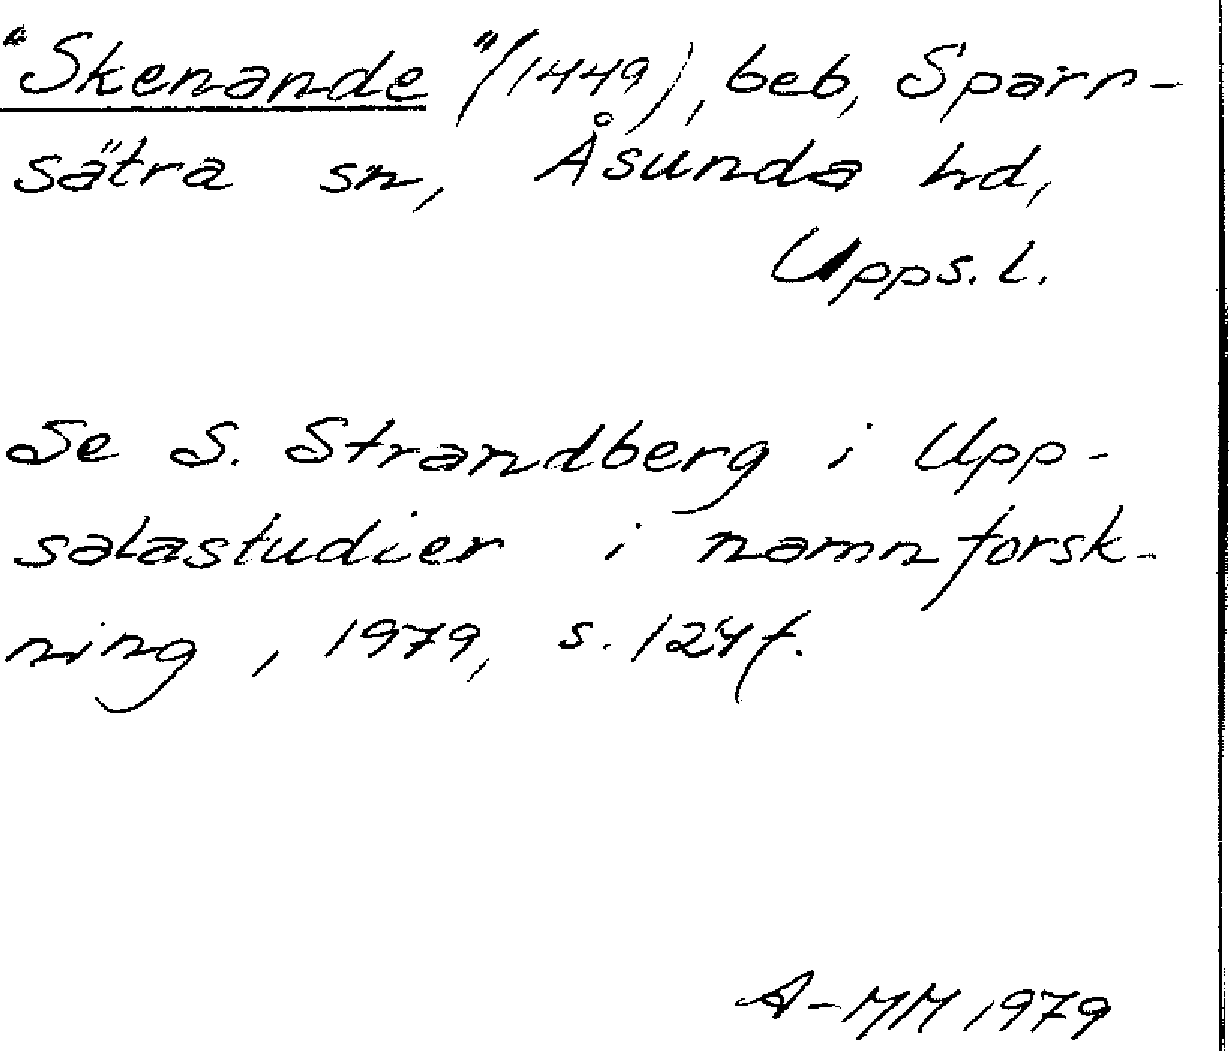 "Skenande" (1449), beb, Sparr-
sätra sn, Åsunda hd,
Upps. l.
Se S. Strandberg i Upp-
salastudier i namnforsk-
ning, 1979, s. 124f.
A-MM 1979